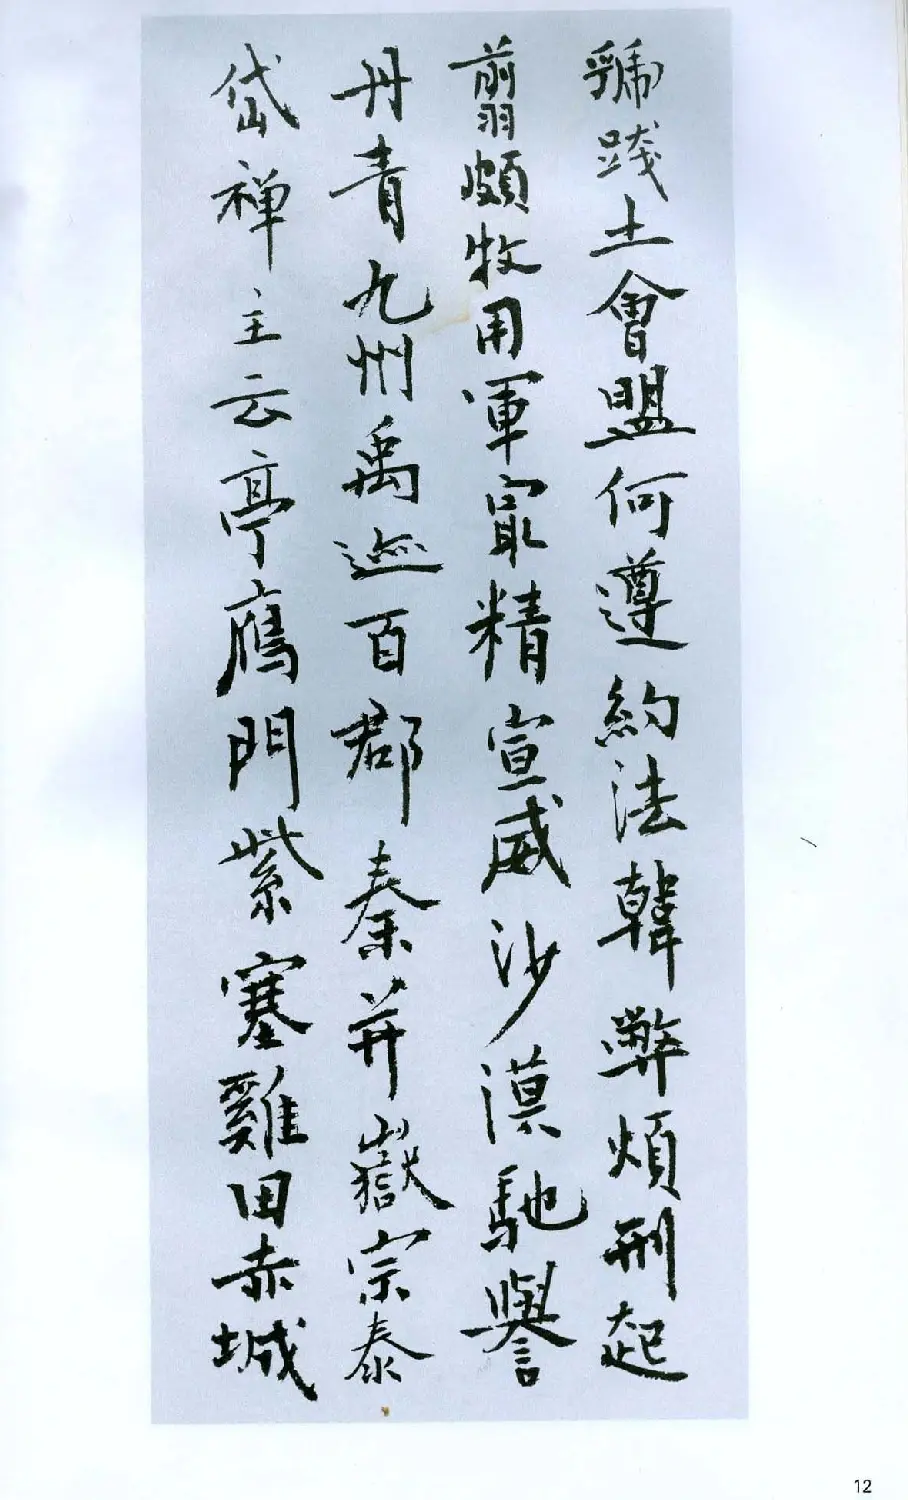 虢踐土會盟何遵約法韓弊煩刑起
翦頗牧用軍冣精宣威沙漠馳譽
丹青九州禹巡百郡秦并嶽宗泰
岱禪主云亭鴈門紫塞雞田赤城
12